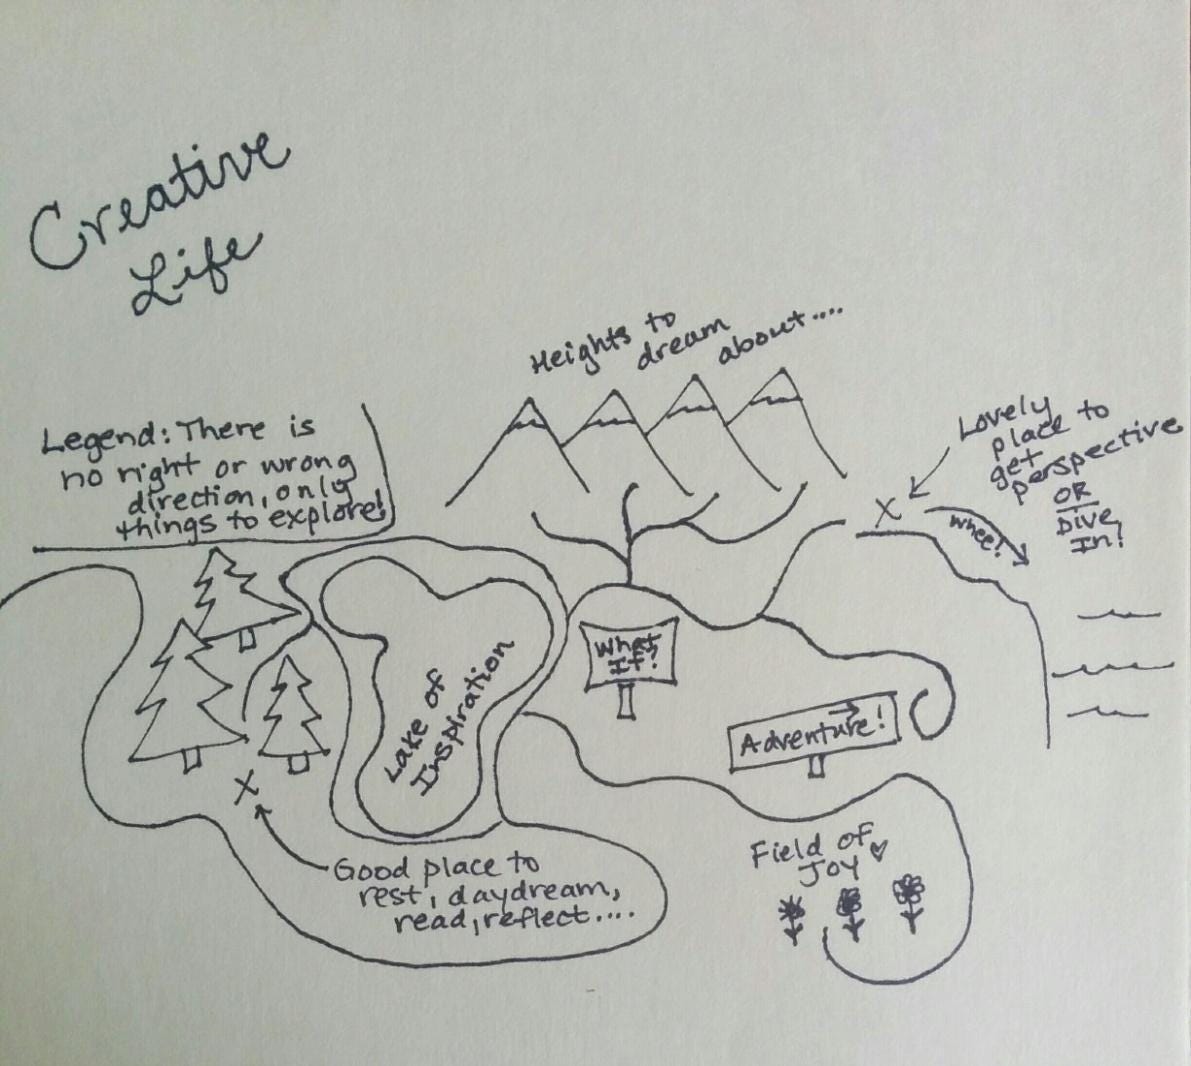 Creative
Life
Heights to
dream
about....
Legend: There is
no right or wrong
direction, only
things to explore!
Lovely
place to
get
perspective
OR
Dive
In!
X
whee!
What
If?
Lake of
Inspiration
Adventure!
X
Good place to
rest, daydream,
read, reflect....
Field of
Joy